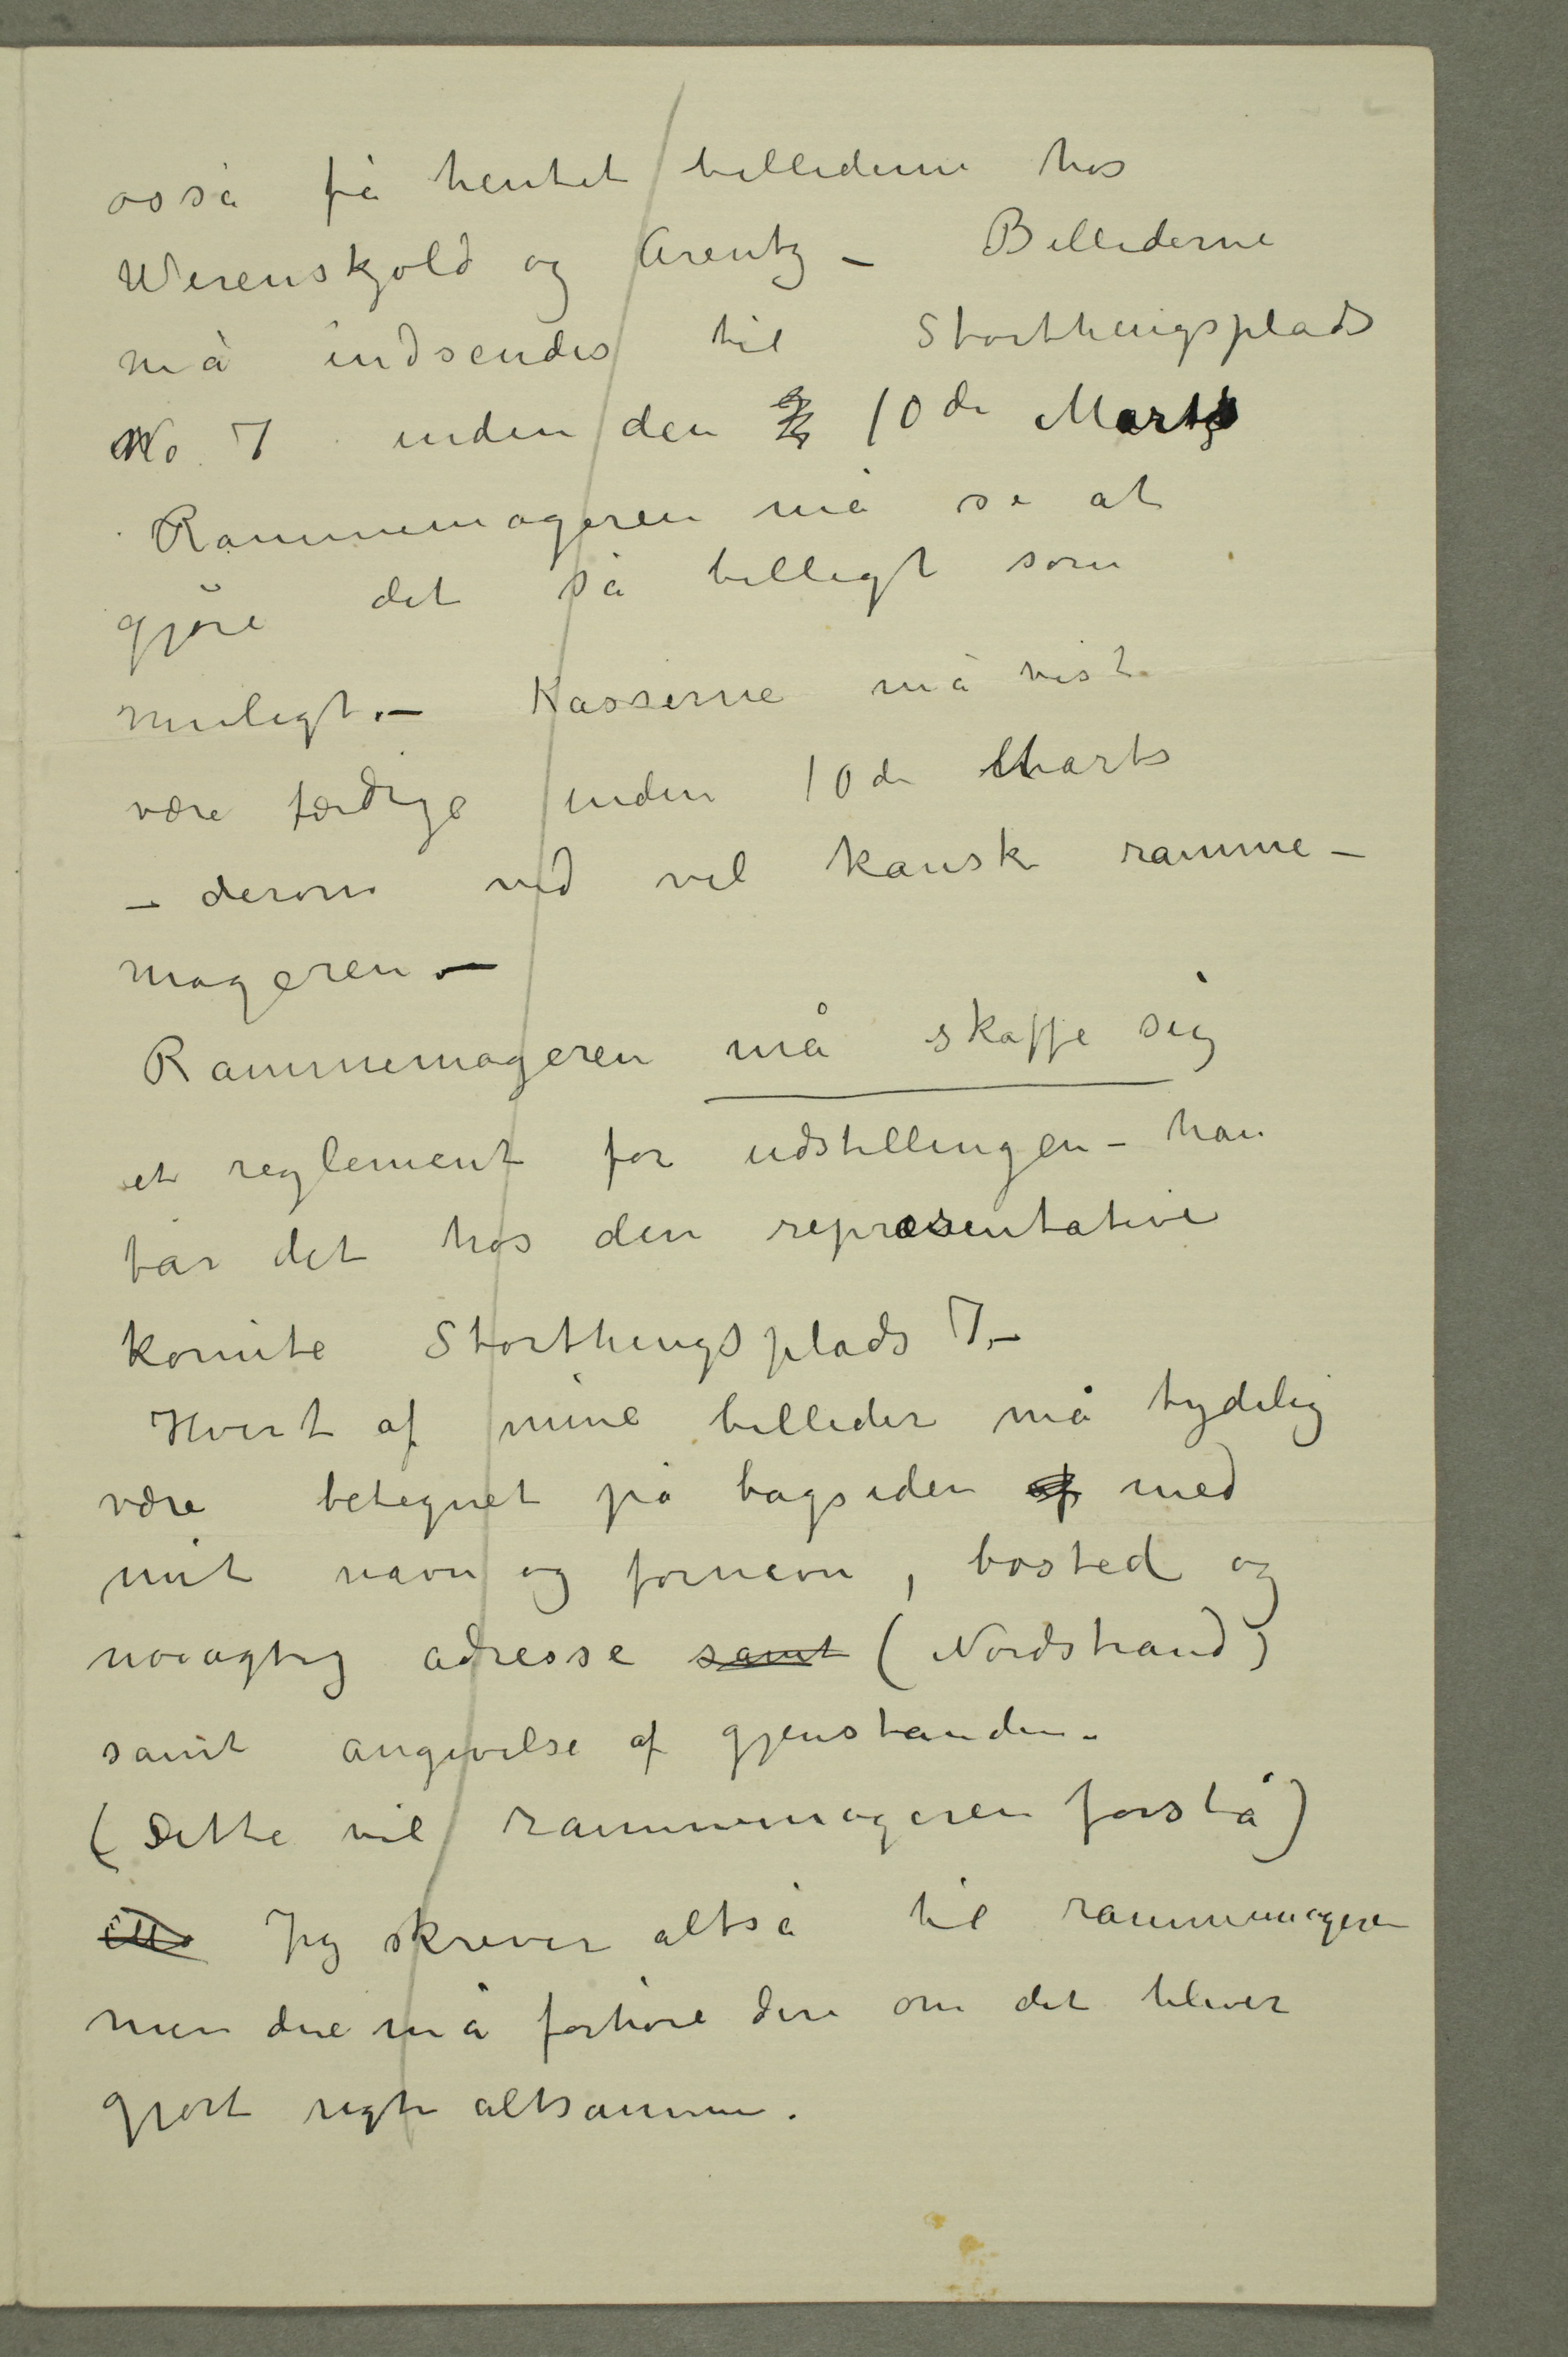 osså få hentet billederne hos
Werenskjold og Arentz – Billederne
må indsendes til Storthingsplads
No 7 inden den 10de Marts
Rammemageren må se at
gjøre det så billigt som
muligt. – Kasserne må vist
være færdige inden 10de Marts
– derom ved vel kanske ramme–
mageren –
Rammemageren må skaffe sig
et reglement for udstillingen – han
får det hos den repræsentative
komite Storthingsplads 7. –
Hvert af mine billeder må tydelig
være betegnet på bagsiden af med
mit navn og fornavn, bosted og
nøiagtig adresse samt (Nordstrand)
samt angivelse af gjenstanden.
(Dette vil rammemageren forstå)
Jeg skriver altså til rammemageren
men dere må forhøre dere om det bliver
gjort rigtig altsammen.